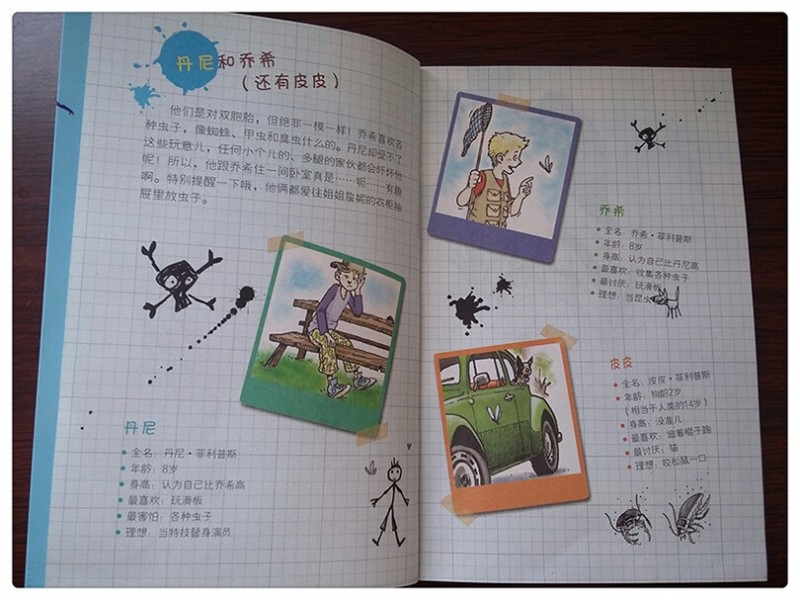 丹尼和乔希
（还有皮皮）
他们是对双胞胎，但绝非一模一样！乔希喜欢各
种虫子，像蜘蛛、甲虫和臭虫什么的。丹尼却受不了
这些玩意儿，任何小个儿的、多腿的家伙都会吓坏他
呢！所以，他跟乔希住一间卧室真是……呃……有趣
啊。特别提醒一下哦，他俩都爱往姐姐詹妮的衣柜抽
屉里放虫子。
丹尼
全名：丹尼·菲利普斯
年龄：8岁
身高：认为自己比乔希高
最喜欢：玩滑板
最害怕：各种虫子
理想：当特技替身演员
乔希
全名：乔希·菲利普斯
年龄：8岁
身高：认为自己比丹尼高
最喜欢：收集各种虫子
最讨厌：玩滑板
理想：当昆虫
皮皮
全名：皮皮·菲利普斯
年龄：狗龄2岁
（相当于人类的14岁）
身高：没准儿
最喜欢：追着棍子跑
最讨厌：猫
理想：咬松鼠一口